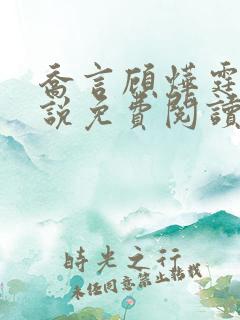 喬言顧燁霆
說免費閱讀
時光之行
未经同意禁止转载